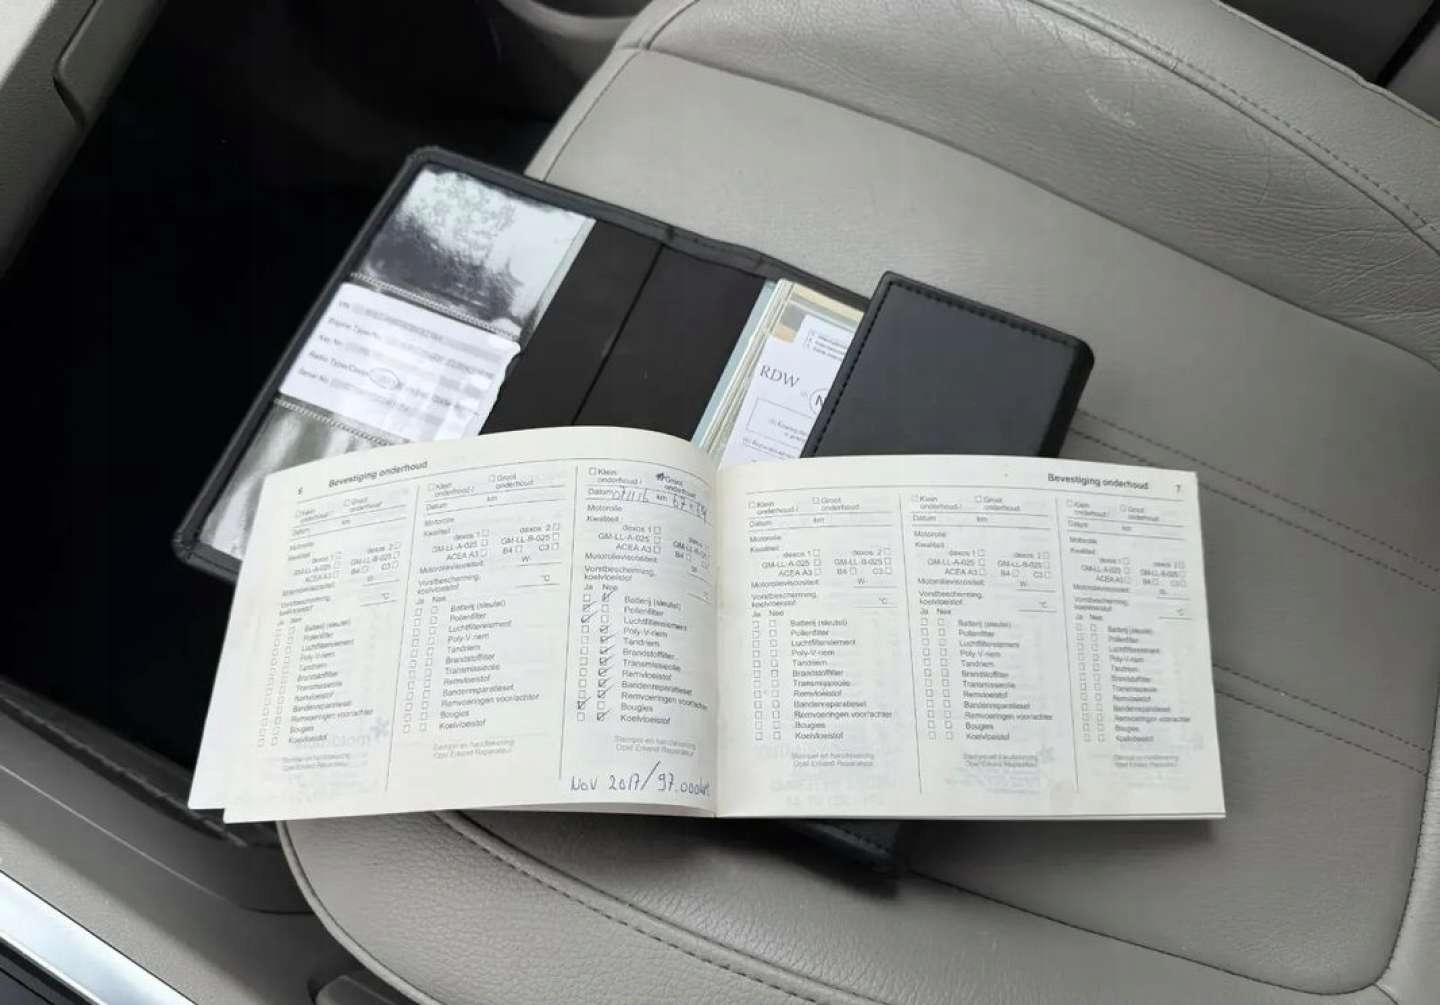 VIN
Engine Type/No
Key No
Radio Type/Code
Serial No
RDW
N
6
Bevestiging onderhoud
Klein onderhoud /
Groot onderhoud
Datum
km
Motorolie
Kwaliteit
dexos 1
dexos 2
GM-LL-A-025
GM-LL-B-025
ACEA A3
B4
C3
Motorolieviscositeit
W-
Vorstbescherming,
koelvloeistof
°C
Ja Nee
Batterij (sleutel)
Pollenfilter
Luchtfilterelement
Poly-V-riem
Tandriem
Brandstoffilter
Transmissieolie
Remvloeistof
Bandenreparatieset
Remvoeringen voor/achter
Bougies
Koelvloeistof
Stempel en handtekening
Opel Erkend Reparateur
Klein onderhoud /
Groot onderhoud
km
Datum
Motorolie
Kwaliteit
dexos 1
dexos 2
GM-LL-A-025
GM-LL-B-025
ACEA A3
B4
C3
Motorolieviscositeit
W-
Vorstbescherming,
koelvloeistof
°C
Ja Nee
Batterij (sleutel)
Pollenfilter
Luchtfilterelement
Poly-V-riem
Tandriem
Brandstoffilter
Transmissieolie
Remvloeistof
Bandenreparatieset
Remvoeringen voor/achter
Bougies
Koelvloeistof
Stempel en handtekening
Opel Erkend Reparateur
Klein onderhoud /
Groot onderhoud
Datum
km
Motorolie
Kwaliteit
dexos 1
dexos
GM-LL-A-025
GM-LL
ACEA A3
B4
Motorolieviscositeit
W-
Vorstbescherming,
koelvloeistof
°C
Ja Nee
Batterij (sleutel)
Pollenfilter
Luchtfilterelement
Poly-V-riem
Tandriem
Brandstoffilter
Transmissieolie
Remvloeistof
Bandenreparatieset
Remvoeringen voor/achter
Bougies
Koelvloeistof
Stempel en handtekening
Opel Erkend Reparateur
Nov 2017/97.000km
Bevestiging onderhoud
7
Klein onderhoud /
Groot onderhoud
Datum
km
Motorolie
Kwaliteit
dexos 1
dexos 2
GM-LL-A-025
GM-LL-B-025
ACEA A3
B4
C3
Motorolieviscositeit
W-
Vorstbescherming,
koelvloeistof
°C
Ja Nee
Batterij (sleutel)
Pollenfilter
Luchtfilterelement
Poly-V-riem
Tandriem
Brandstoffilter
Transmissieolie
Remvloeistof
Bandenreparatieset
Remvoeringen voor/achter
Bougies
Koelvloeistof
Stempel en handtekening
Opel Erkend Reparateur
Klein onderhoud /
Groot onderhoud
Datum
km
Motorolie
Kwaliteit
dexos 1
dexos 2
GM-LL-A-025
GM-LL-B-025
ACEA A3
B4
C3
Motorolieviscositeit
W-
Vorstbescherming,
koelvloeistof
°C
Ja Nee
Batterij (sleutel)
Pollenfilter
Luchtfilterelement
Poly-V-riem
Tandriem
Brandstoffilter
Transmissieolie
Remvloeistof
Bandenreparatieset
Remvoeringen voor/achter
Bougies
Koelvloeistof
Stempel en handtekening
Opel Erkend Reparateur
Klein onderhoud /
Groot onderhoud
Datum
km
Motorolie
Kwaliteit
dexos 1
dexos 2
GM-LL-A-025
GM-LL-B-025
ACEA A3
B4
C3
Motorolieviscositeit
W-
Vorstbescherming,
koelvloeistof
°C
Ja Nee
Batterij (sleutel)
Pollenfilter
Luchtfilterelement
Poly-V-riem
Tandriem
Brandstoffilter
Transmissieolie
Remvloeistof
Bandenreparatieset
Remvoeringen voor/achter
Bougies
Koelvloeistof
Stempel en handtekening
Opel Erkend Reparateur